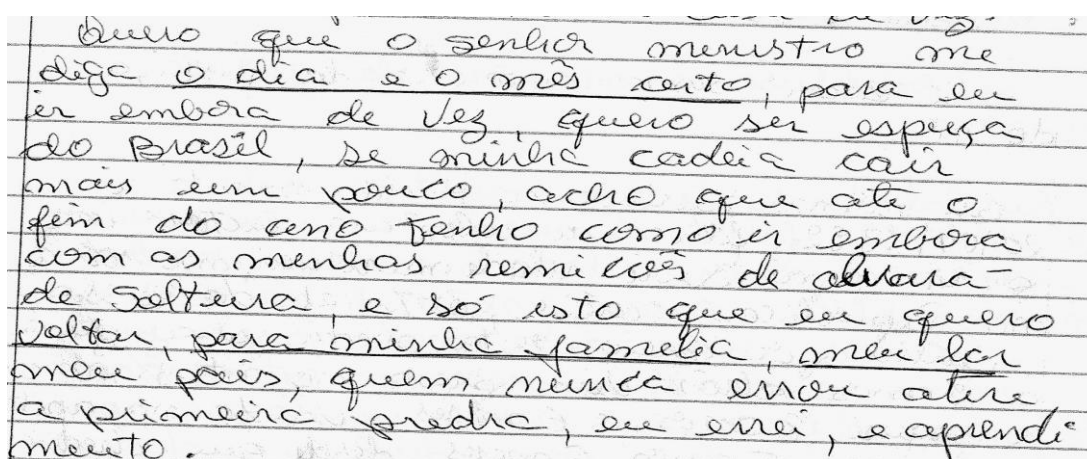 Quero que o senhor menistro me
diga o dia e o mês certo, para eu
ir embora de vez, quero ser espuça
do Brasil, se minha cadeia cair
mais um pouco, acho que ate o
fim do ano tenho como ir embora
com as menhas remicões de alvara
de Solteira, e só isto que eu quero
voltar, para minha famelia, meu lar
meu pais, quem nunca errou atire,
a primeira predra, eu errei, e aprendi
muito.